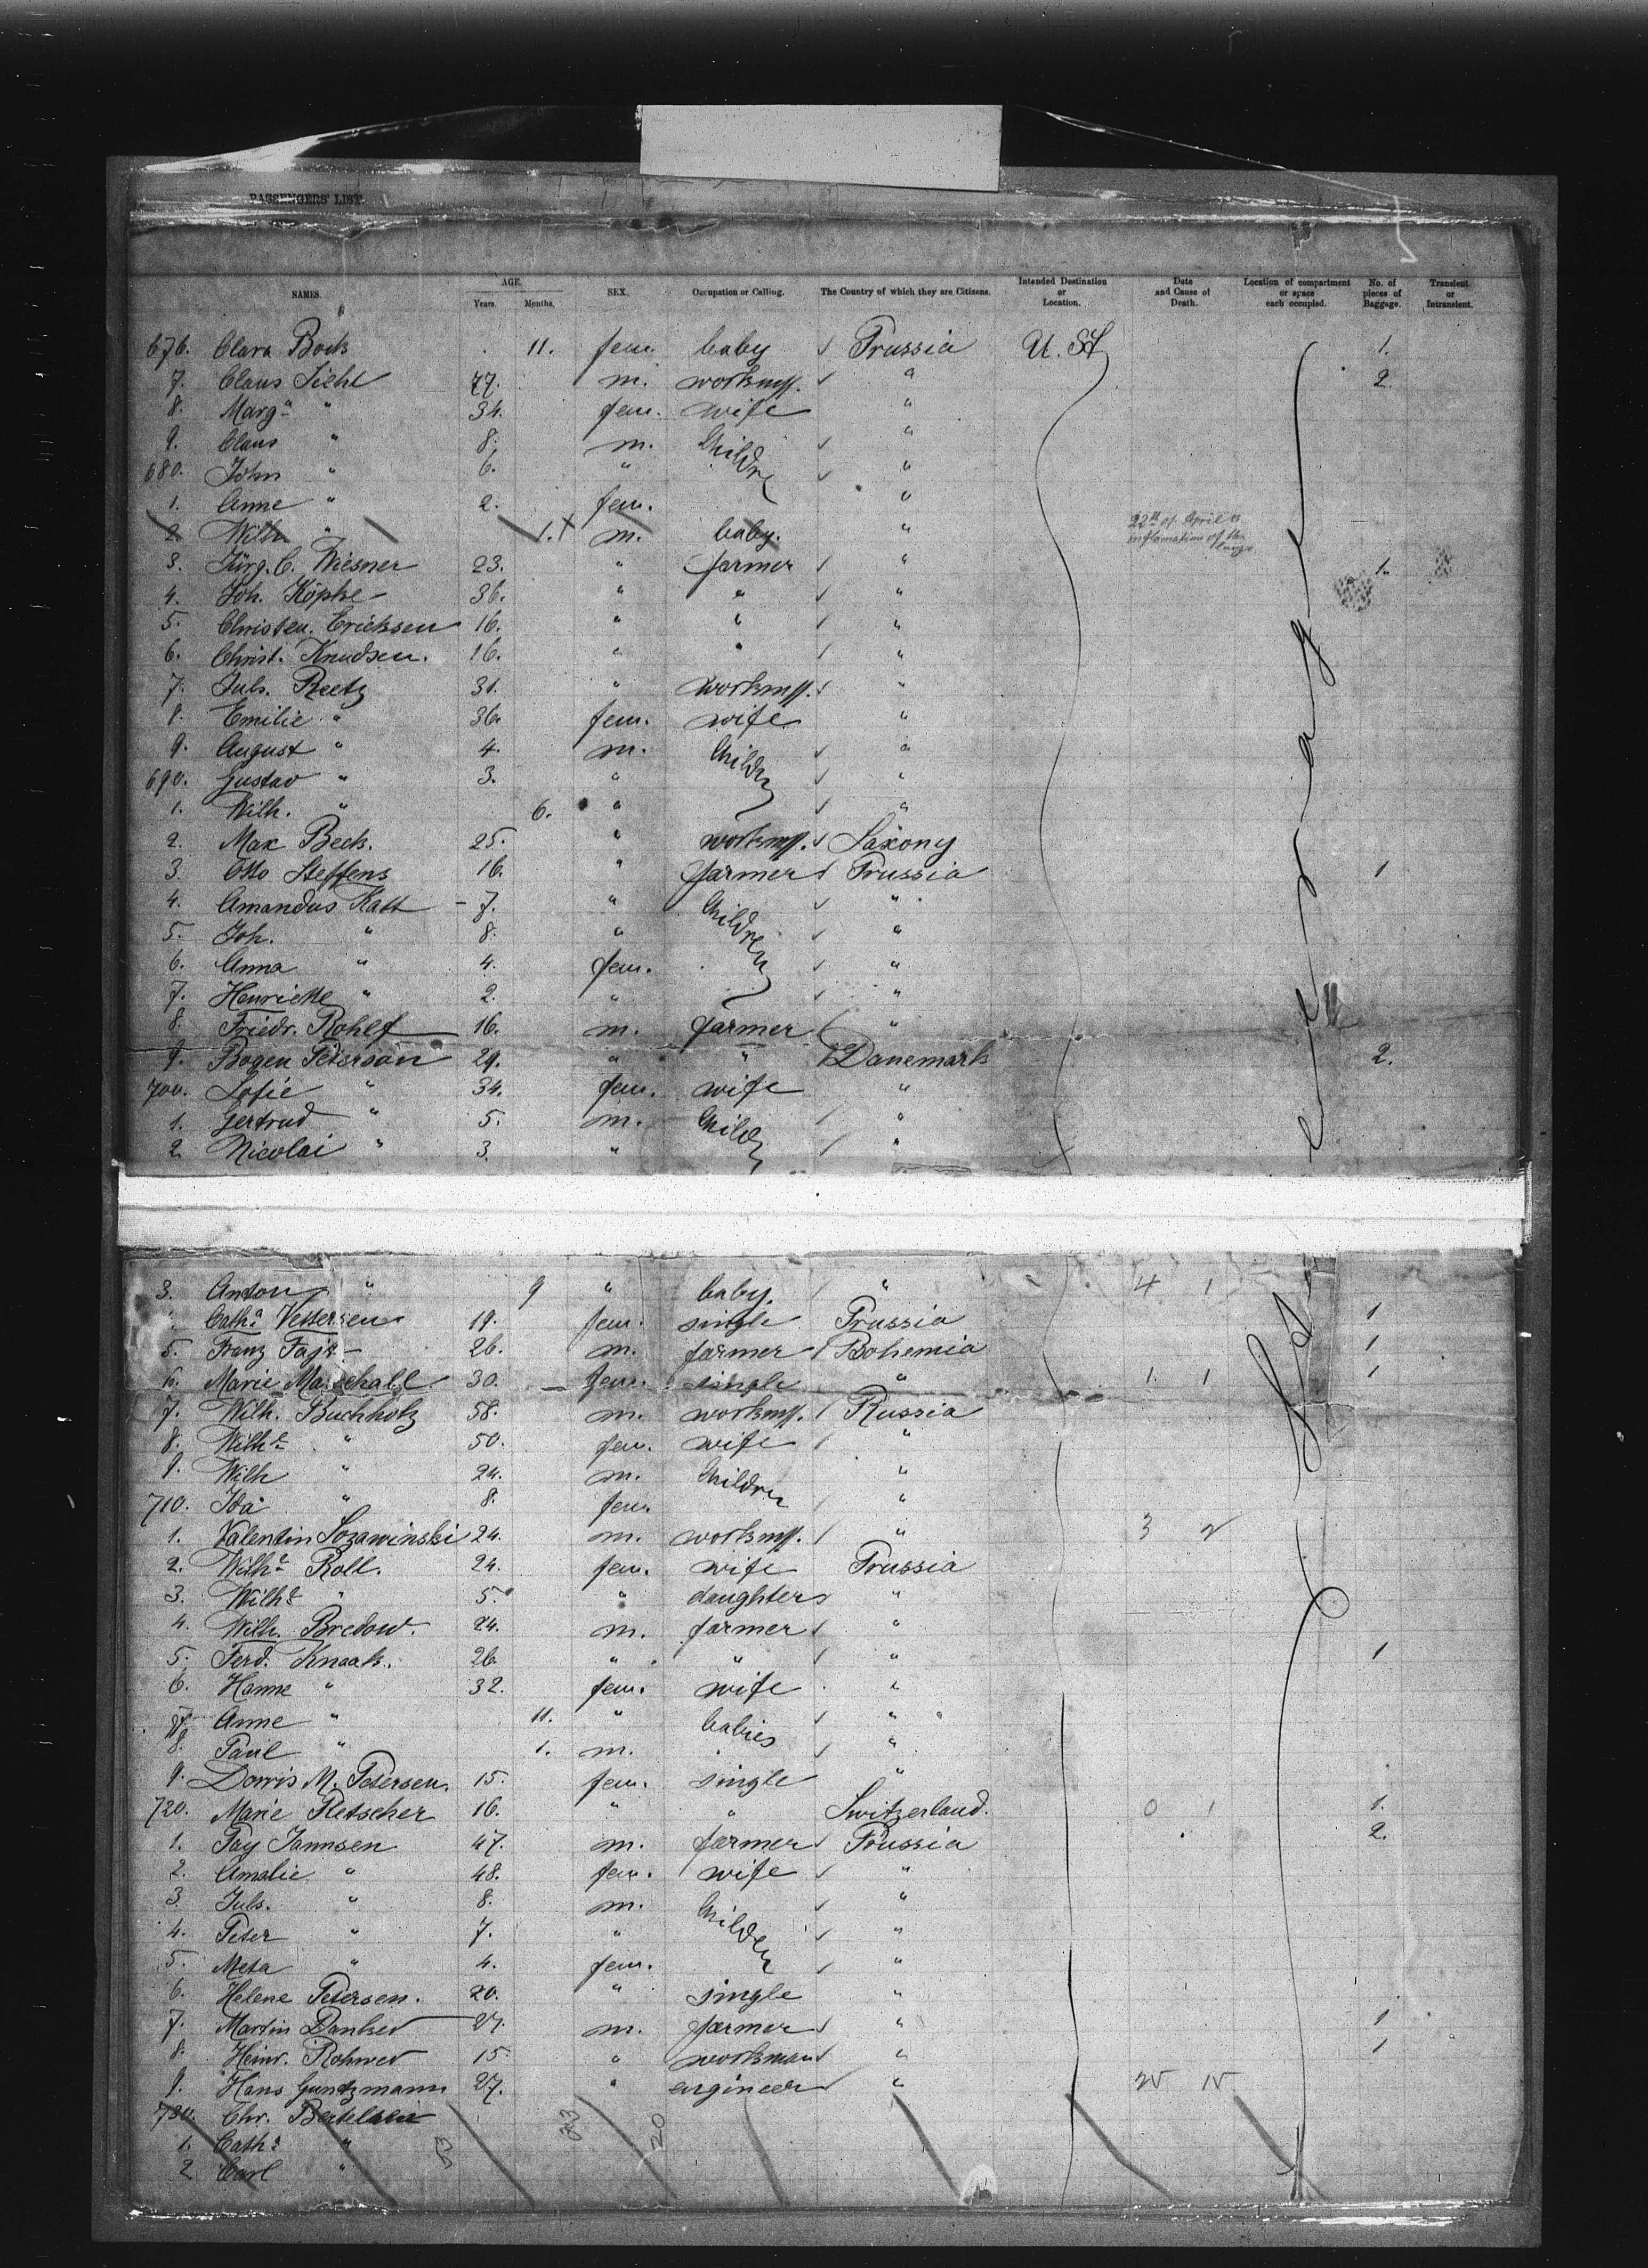 PASSENGERS' LIST.
NAMES. AGE. Years. Months. SEX. Occupation or Calling. The Country of which they are Citizens. Intended Destination or Location. Date and Cause of Death. Location of compartment or space each occupied. No. of pieces of Baggage. Transient or Intransient.
676. Clara Bock 11. fem. baby ✓ Prussia U. St 1.
7. Claus Siehl 47. m. worksmss. ✓ " 2.
8. Marga " 34. fem. wife "
9. Claus " 8. m. Childre ✓ "
680. John " 6. " ✓ "
1. Anne " 2. fem. "
2 Wilh " 1. X m. baby. " 22th of April inflamation of the lungs
3. Jürg. C. Wiesner 23. " farmer ✓ " 1.
4. Joh. Köpke 36. " " ✓ "
5. Christen. Ericksen 16. " " ✓ "
6. Christ. Knudsen. 16. " " ✓ "
7. Juls. Reetz 31. " worksmss. ✓ "
8. Emilie " 36. fem. wife "
9. August " 4. m. Childr ✓ "
690. Gustav " 3. " ✓ "
1. Wilh. " 6. " ✓ "
2. Max Beck. 25. " worksmss. ✓ Saxony
3. Otto Steffens 16. " farmer ✓ Prussia 1
4. Amandus Katt - 7. " Children ✓ "
5. Joh. " 8. " ✓ "
6. Anna " 4. fem. ✓ "
7. Henriette " 2. " ✓ "
8. Friedr. Rohlf 16. m. farmer ✓ "
9. Bogen Peterson 29. " " ✓ Danemark 2.
700. Sofie " 34. fem. wife "
1. Gertrud " 5. m. Child ✓ "
2. Nicolai " 3. " ✓ "
3. Anton " 9 " baby. ✓ " 4 1
Catha Vettersen 19. fem. single Prussia 1
5. Franz Fajt 26. m. farmer ✓ Bohemia 1
6. Marie Marschall 30. fem. single " 1. 1 1
7. Wilh. Buchholz 58. m. worksmss. ✓ Russia
8. Wilhe " 50. fem. wife ✓ "
9. Wilh " 24. m. Children "
710. Ida " 8. fem. ✓ "
1. Valentin Sozawinski 24. m. worksmss. ✓ " 3 2
2. Wilhe Roll. 24. fem. wife Prussia
3. Wilhe " 5. " daughter "
4. Wilh. Bredow. 24. m. farmer ✓ "
5. Ferd. Knaak. 26. " " ✓ " 1
6. Hanne " 32. fem. wife "
7. Anne " 11. " babies ✓ "
8. Paul " 1. m. ✓ "
9. Dorris M. Petersen. 15. fem. single "
720. Marie Fletscher 16. " " Switzerland. 0 1 1.
1. Pay Jannsen 47. m. farmer ✓ Prussia 2.
2. Amalie " 48. fem. wife ✓ "
3. Juls. " 8. m. Children ✓ "
4. Peter " 7. " ✓ "
5. Meta " 4. fem. ✓ "
6. Helene Petersen. 20. " single "
7. Martin 27. m. farmer ✓ " 1
8. Heinr. Rohwer 15. " workman ✓ " 1
9. Hans Guntzmann 27. " engineer ✓ "
730. Chr. Bertelsen
1. Catha "
2 Carl "